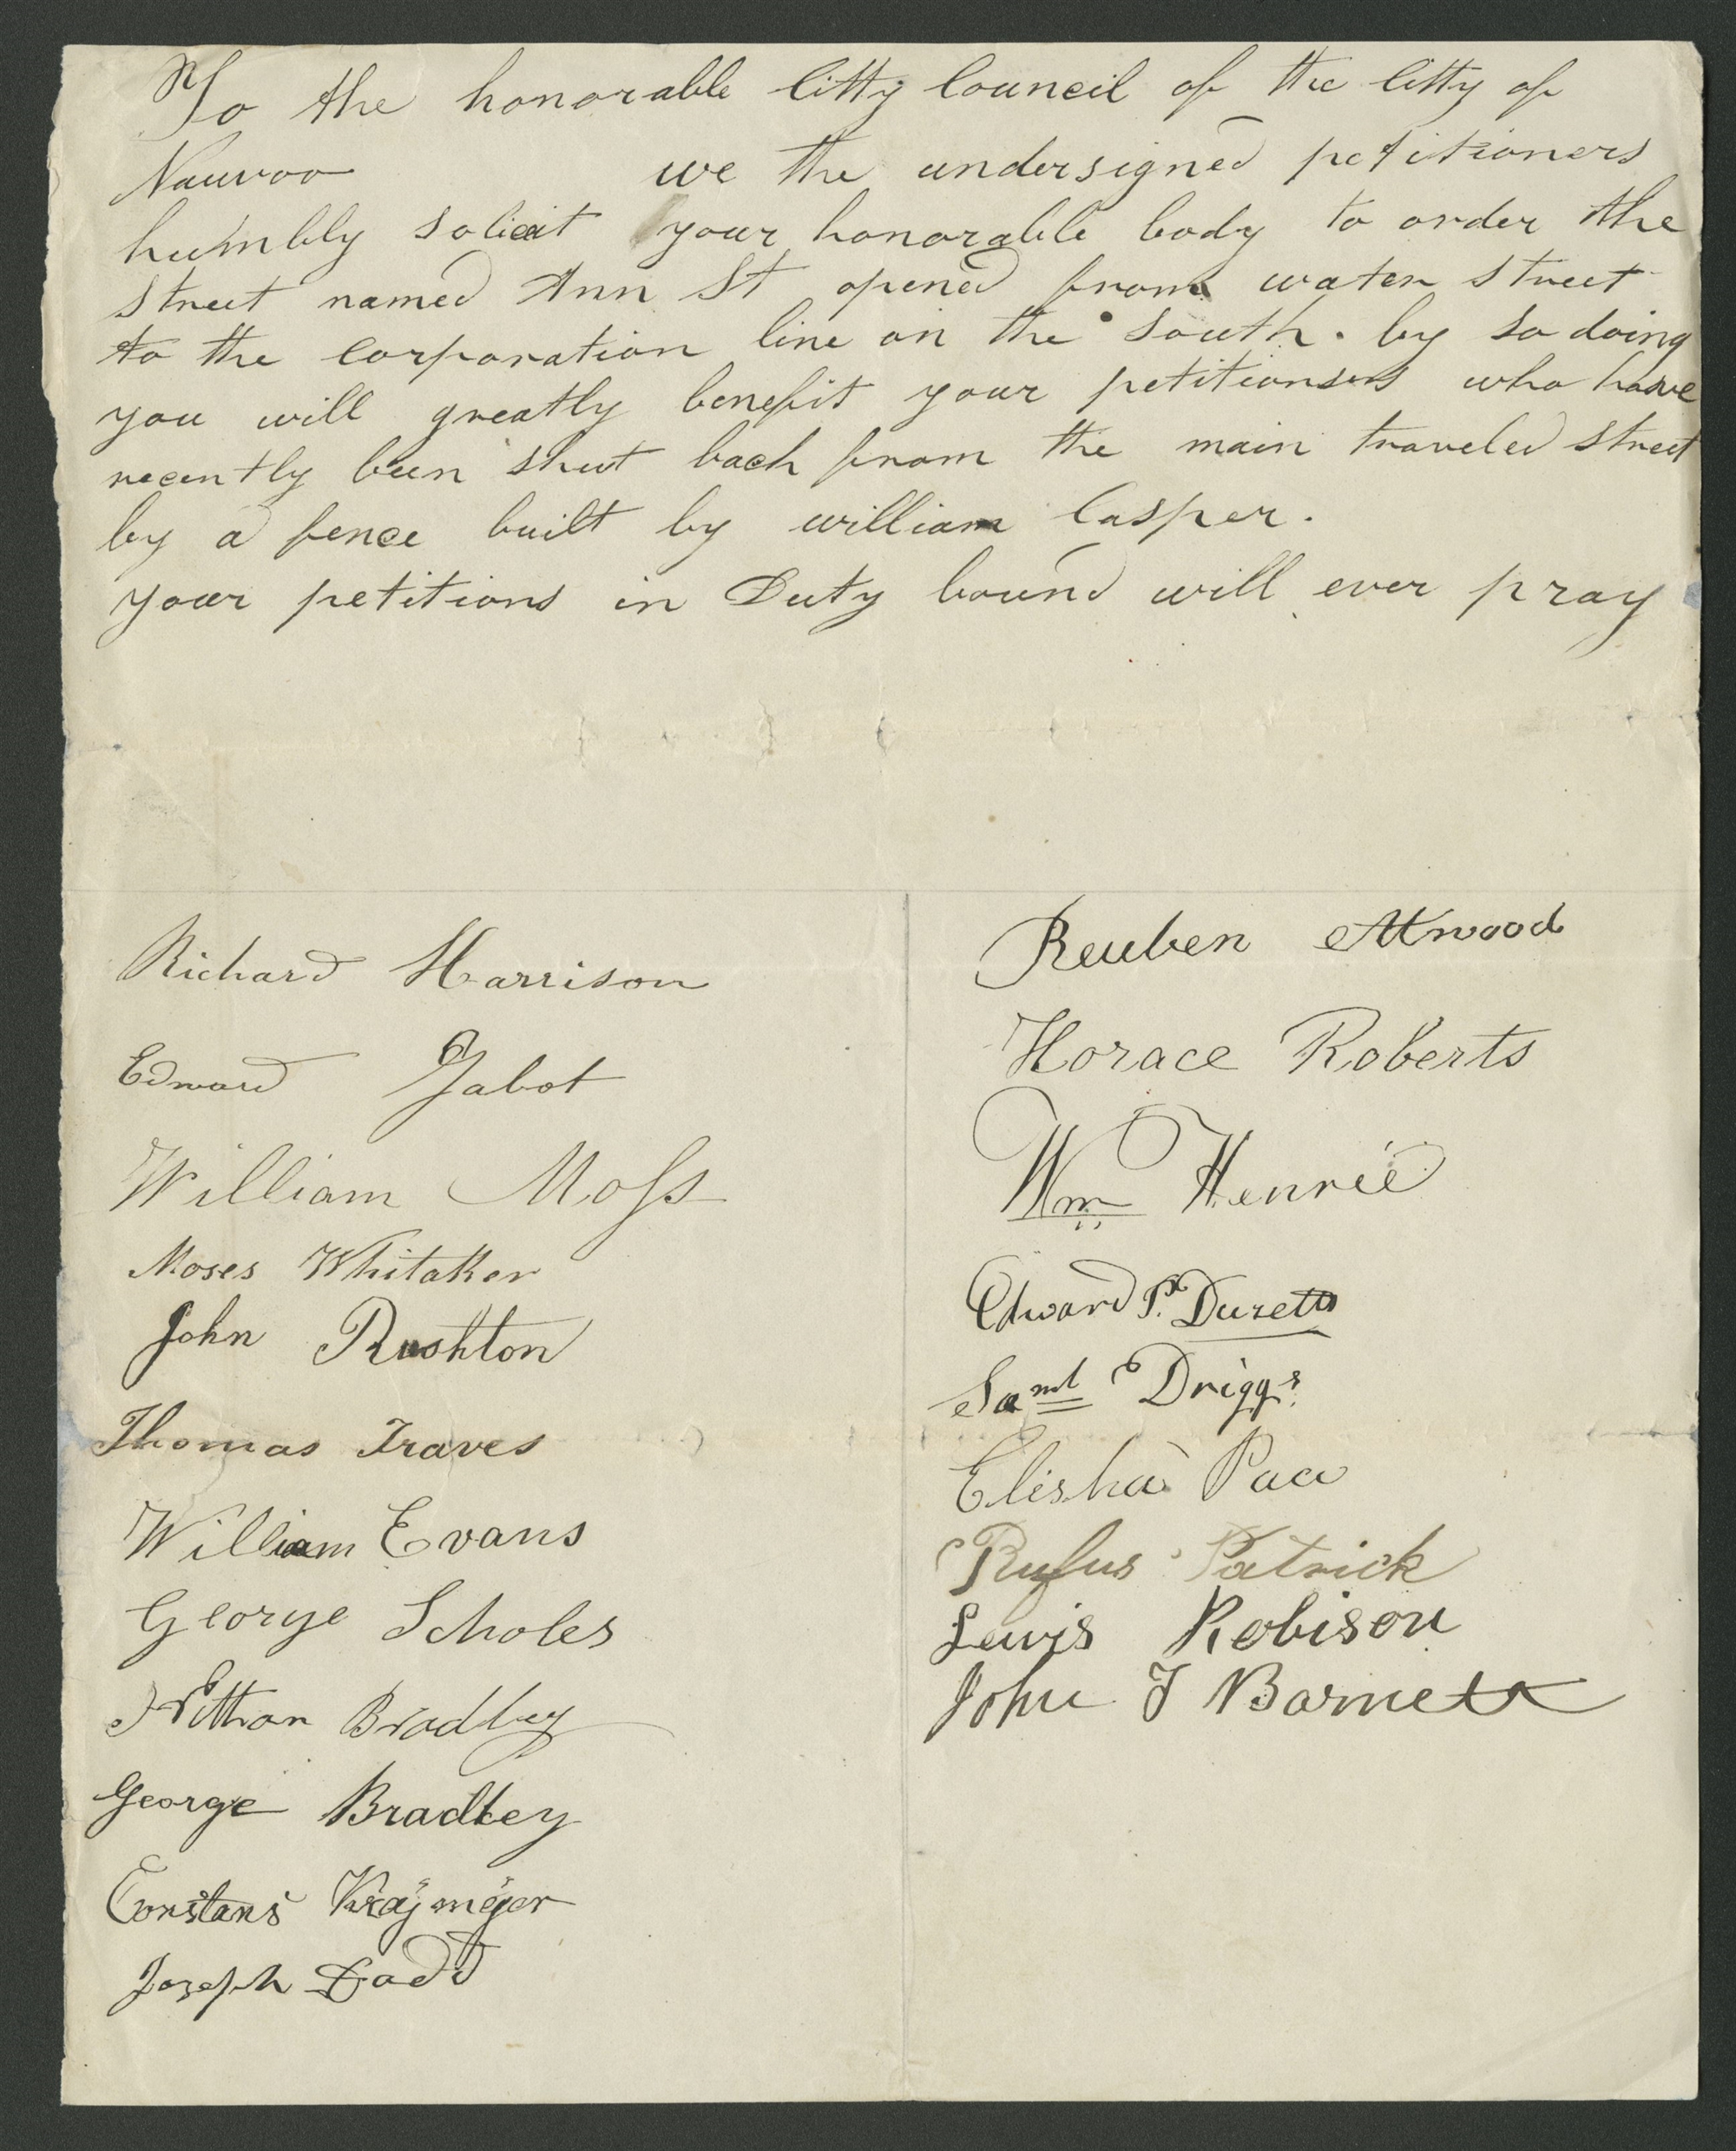 To the honorable Citty Council of the Citty of
Nauvoo we the undersigned petitioners
humbly solicit your honorable body to order the
street named Ann St opened from water street
to the corporation line on the south. by so doing
you will greatly benefit your petitioners who have
recently been shut back from the main traveled street
by a fence built by william Casper.
your petitions in Duty bound will ever pray
Richard Harrison
Edward Jabot
William Moss
Moses Whitaker
John Rushton
Thomas Traves
William Evans
George Scholes
Bradley
George Bradley
Joseph Dadd
Reuben Atwood
Horace Roberts
Wm Henrie
Edward P. Duzett
Saml Driggs
Elisha Pace
Rufus Patrick
Lewis Robison
John T Barnett